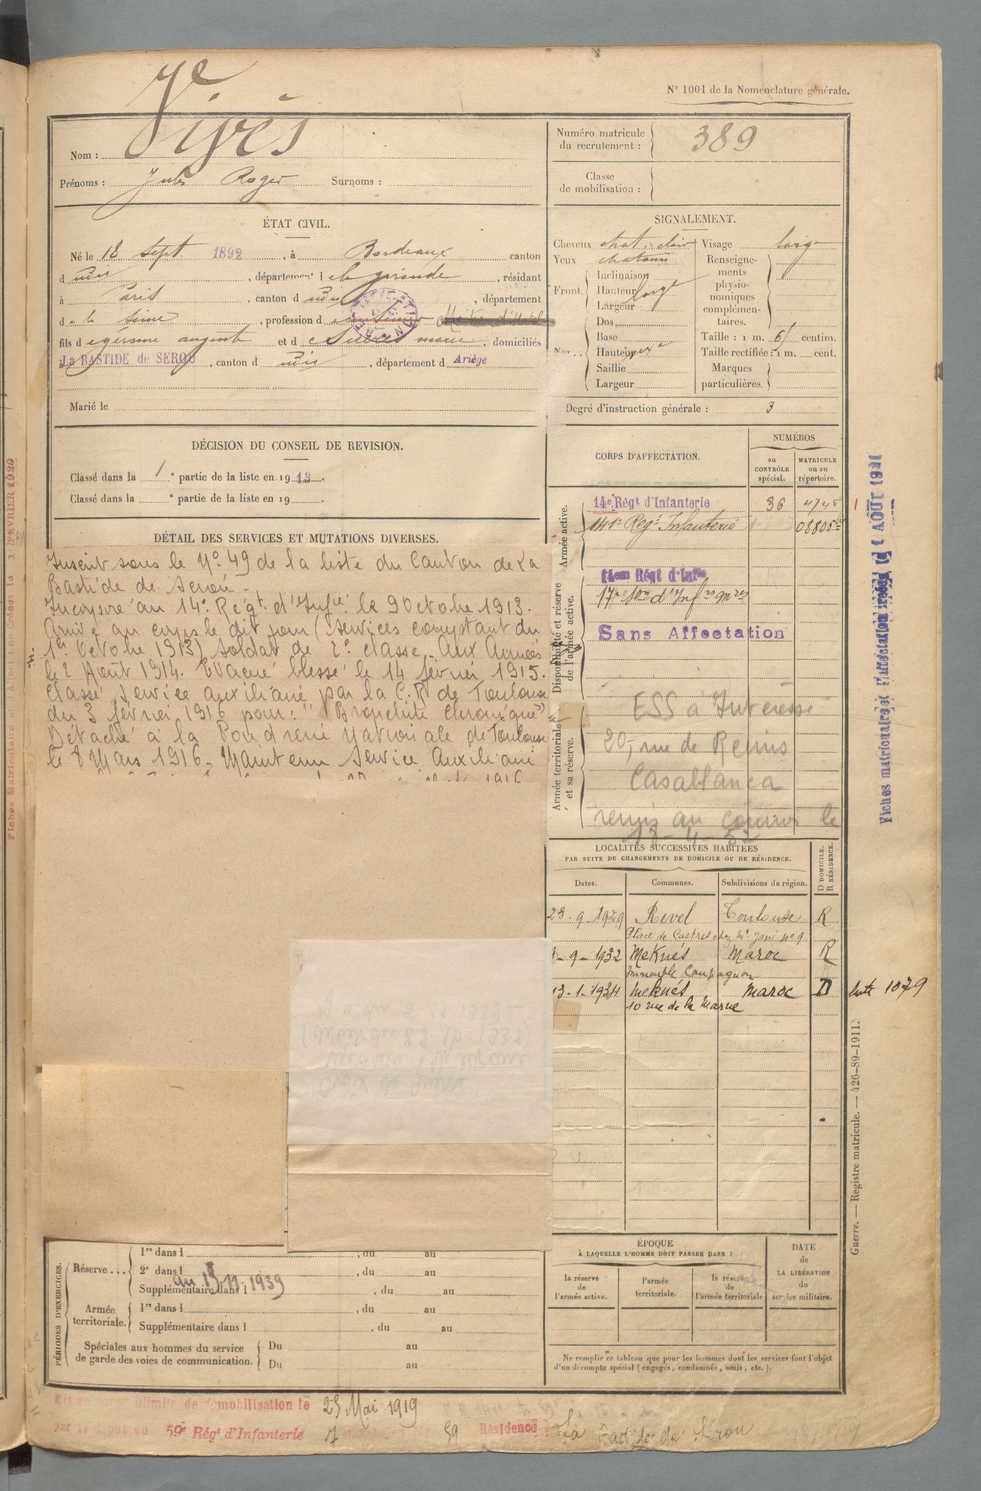 N° 1001 de la Nomenclature générale.
Vivès
Nom :
Prénoms : Jules Roger Surnoms :
Numéro matricule du recrutement : 389
Classe de mobilisation :
ÉTAT CIVIL.
Né le 18 Sept. 1892, à Bordeaux canton
d dudit, département de la gironde, résidant
à Paris, canton d dudit, département
de la Seine, profession d
fils d auguste et d marie, domiciliés
à La BASTIDE de SEROU, canton d dudit, département d Ariège
Marié le
SIGNALEMENT.
Cheveux chat. clair Visage large
Yeux chatains Renseignements physionomiques complémentaires.
Front. Inclinaison
Hauteur
Largeur large
Nez.. Dos
Base Taille : 1 m. 61 centim.
Hauteur Taille rectifiée : 1 m. cent.
Saillie Marques
Largeur particulières.
Degré d'instruction générale : 3
DÉCISION DU CONSEIL DE REVISION.
Classé dans la 1° partie de la liste en 1913.
Classé dans la ° partie de la liste en 19 .
DÉTAIL DES SERVICES ET MUTATIONS DIVERSES.
Inscrit sous le N° 49 de la liste du Canton de La
Bastide de Serou.
Incorporé au 14e Régt d'Infie le 9 Octobre 1913.
Arrivé au corps le dit jour (services comptant du
1er Octobre 1913) soldat de 2e classe. Aux Armées
le 2 Août 1914. Evacué blessé le 14 février 1915.
Classé service auxiliaire par la C.R. de Toulouse
du 3 février 1916 pour : "Bronchite chronique"
Détaché à la Poudrerie Nationale de Toulouse
le 8 Mars 1916. Maintenu Service Auxiliaire
CORPS D'AFFECTATION.
NUMÉROS
au CONTRÔLE spécial.
MATRICULE ou au répertoire.
Armée active.
14e Régt d'Infanterie 36
141e Régt Infanterie
Disponibilité et réserve de l'armée active.
14em Régt d'Infie
17e Son d'Infres Mres
Sans Affectation
Armée territoriale et sa réserve.
ESS à Intéressé
20, rue de Reims
Casablanca
remis au courrier le
18-4-52
Fiches matricules et d'affectation créées le 1 AOUT 1921
LOCALITÉS SUCCESSIVES HABITÉES
PAR SUITE DE CHANGEMENTS DE DOMICILE OU DE RÉSIDENCE.
D DOMICILE. R RÉSIDENCE.
Dates. Communes. Subdivisions de région.
23-9-1929 Revel Toulouse R
Place de Castres chez Mr
1-9-1932 Meknés Maroc R
Immeuble Compagnon
13-1-1934 Meknés Maroc D
10 rue de la Marne
1079
Guerre. — Registre matricule. — 426-89-1911.
PÉRIODES D'EXERCICES.
Réserve... 1re dans l , du au
2e dans l , du au
Supplémentaire dans l , du au
au 15-11-1939
Armée territoriale. 1re dans l , du au
Supplémentaire dans l , du au
Spéciales aux hommes du service de garde des voies de communication. Du au
Du au
ÉPOQUE
À LAQUELLE L'HOMME DOIT PASSER DANS :
la réserve de l'armée active.
l'armée territoriale.
la réserve de l'armée territoriale
DATE de LA LIBÉRATION du service militaire.
Ne remplir ce tableau que pour les hommes dont les services font l'objet d'un décompte spécial (engagés, condamnés, omis, etc.).
Mis en congé illimité de démobilisation le 23 Mai 1919
par le dépôt du 59e Régt d'Infanterie Résidence : La Bastide de Sérou